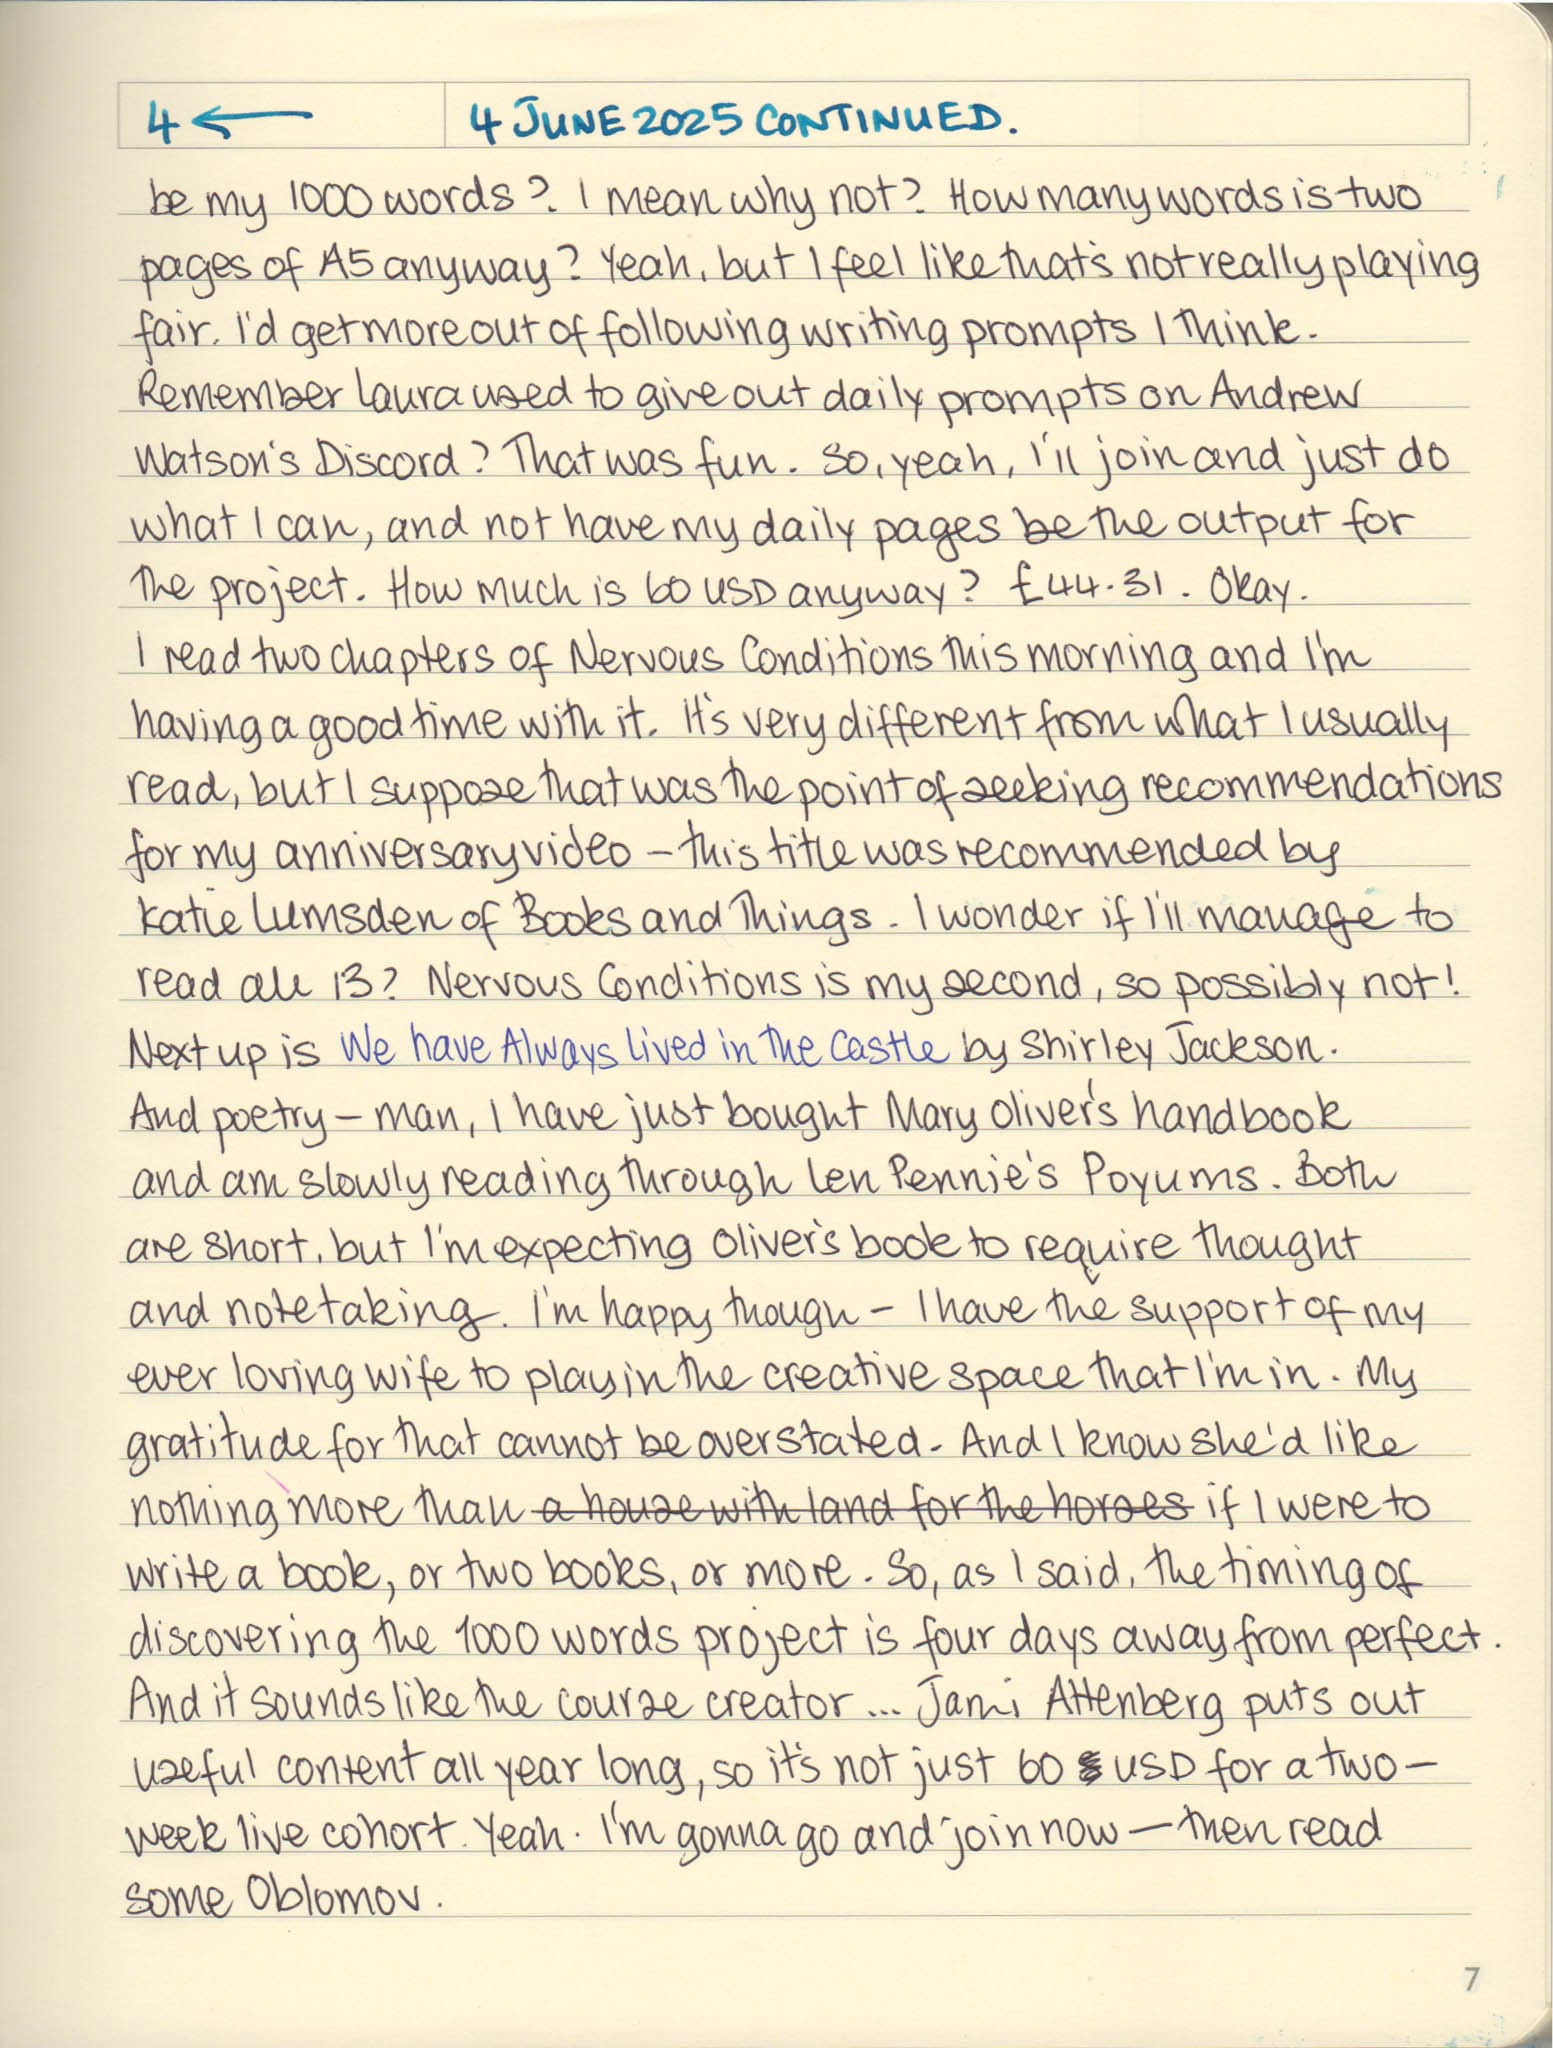 4 ← 4 JUNE 2025 CONTINUED.
be my 1000 words? I mean why not? How many words is two
pages of A5 anyway? Yeah, but I feel like that's not really playing
fair. I'd get more out of following writing prompts I think.
Remember Laura used to give out daily prompts on Andrew
Watson's Discord? That was fun. So, yeah, I'll join and just do
what I can, and not have my daily pages be the output for
the project. How much is 60 USD anyway? £44.31. Okay.
I read two chapters of Nervous Conditions this morning and I'm
having a good time with it. It's very different from what I usually
read, but I suppose that was the point of seeking recommendations
for my anniversary video – this title was recommended by
Katie Lumsden of Books and Things. I wonder if I'll manage to
read all 13? Nervous Conditions is my second, so possibly not!
Next up is We have Always Lived in the Castle by Shirley Jackson.
And poetry – man, I have just bought Mary Oliver's handbook
and am slowly reading through Len Pennie's Poyums. Both
are short, but I'm expecting Oliver's book to require thought
and notetaking. I'm happy though – I have the support of my
ever loving wife to play in the creative space that I'm in. My
gratitude for that cannot be overstated. And I know she'd like
nothing more than a house with land for the horses if I were to
write a book, or two books, or more. So, as I said, the timing of
discovering the 1000 words project is four days away from perfect.
And it sounds like the course creator... Jami Attenberg puts out
useful content all year long, so it's not just 60 USD for a two–
week live cohort. Yeah. I'm gonna go and join now – then read
some Oblomov.
7